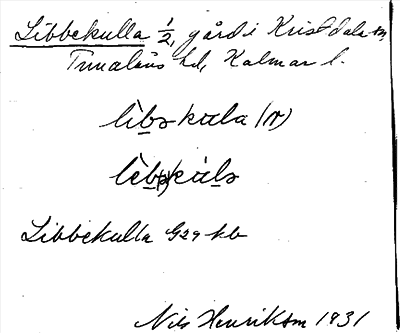 Libbekulla ½, gård i Kristdala sn,
Tunaläns hd, Kalmar l.
lìbəkula (n)
Libbekulla G29 kb
Nils Henrikson 1931